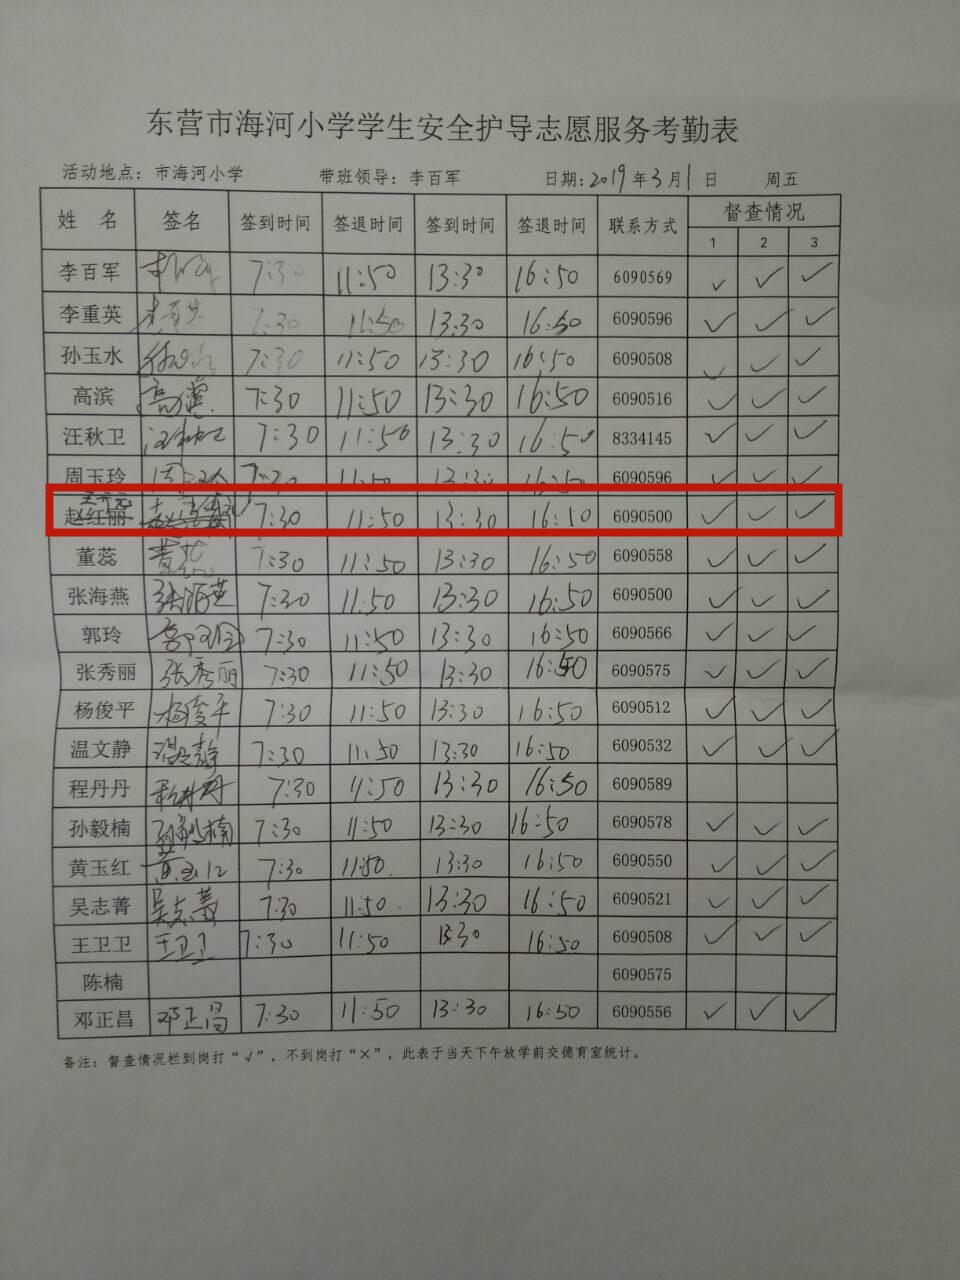 东营市海河小学学生安全护导志愿服务考勤表
活动地点：市海河小学 带班领导：李百军 日期：2019年3月1日 周五
姓 名 签名 签到时间 签退时间 签到时间 签退时间 联系方式 督查情况
1 2 3
李百军 7:30 11:50 13:30 16:50 6090569 ✓ ✓ ✓
李重英 李重英 7:30 11:50 13:30 16:50 6090596 ✓ ✓ ✓
孙玉水 孙玉水 7:30 11:50 13:30 16:50 6090508 ✓ ✓ ✓
高滨 高滨 7:30 11:50 13:30 16:50 6090516 ✓ ✓ ✓
汪秋卫 汪秋卫 7:30 11:50 13:30 16:50 8334145 ✓ ✓ ✓
周玉玲 周玉玲 7:30 11:50 13:30 16:50 6090596 ✓ ✓ ✓
赵红丽 7:30 11:50 13:30 16:50 6090500 ✓ ✓ ✓
董蕊 董蕊 7:30 11:50 13:30 16:50 6090558 ✓ ✓ ✓
张海燕 张海燕 7:30 11:50 13:30 16:50 6090500 ✓ ✓ ✓
郭玲 郭玲 7:30 11:50 13:30 16:50 6090566 ✓ ✓ ✓
张秀丽 张秀丽 7:30 11:50 13:30 16:50 6090575 ✓ ✓ ✓
杨俊平 杨俊平 7:30 11:50 13:30 16:50 6090512 ✓ ✓ ✓
温文静 温文静 7:30 11:50 13:30 16:50 6090532 ✓ ✓ ✓
程丹丹 程丹丹 7:30 11:50 13:30 16:50 6090589
孙毅楠 孙毅楠 7:30 11:50 13:30 16:50 6090578 ✓ ✓ ✓
黄玉红 黄玉红 7:30 11:50 13:30 16:50 6090550 ✓ ✓ ✓
吴志菁 吴志菁 7:30 11:50 13:30 16:50 6090521 ✓ ✓ ✓
王卫卫 王卫卫 7:30 11:50 13:30 16:50 6090508 ✓ ✓ ✓
陈楠 6090575
邓正昌 邓正昌 7:30 11:50 13:30 16:50 6090556 ✓ ✓ ✓
备注：督查情况栏到岗打“√”，不到岗打“×”，此表于当天下午放学前交德育室统计。